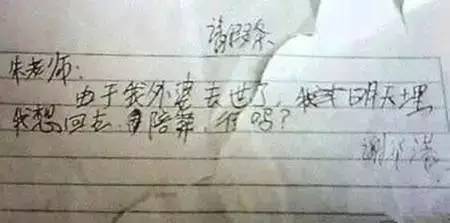 请假条
朱老师:
由于我外婆去世了,明天埋
我想回去陪葬,行吗?